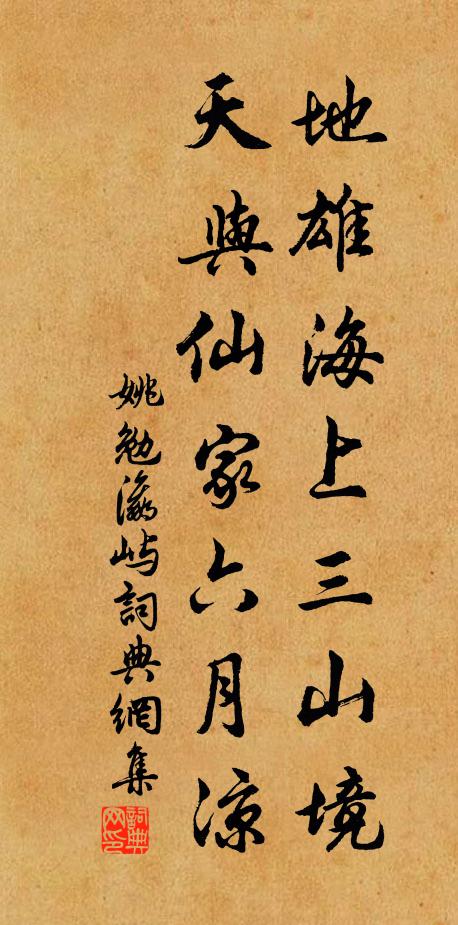 地雄海上三山境
天與仙家六月凉
姚勉瀛嶼詞典網集
詞典网印